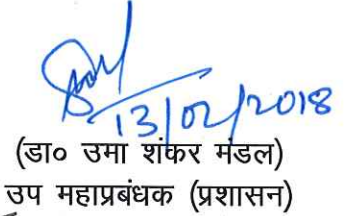 13/02/2018
(डा० उमा शंकर मंडल)
उप महाप्रबंधक (प्रशासन)